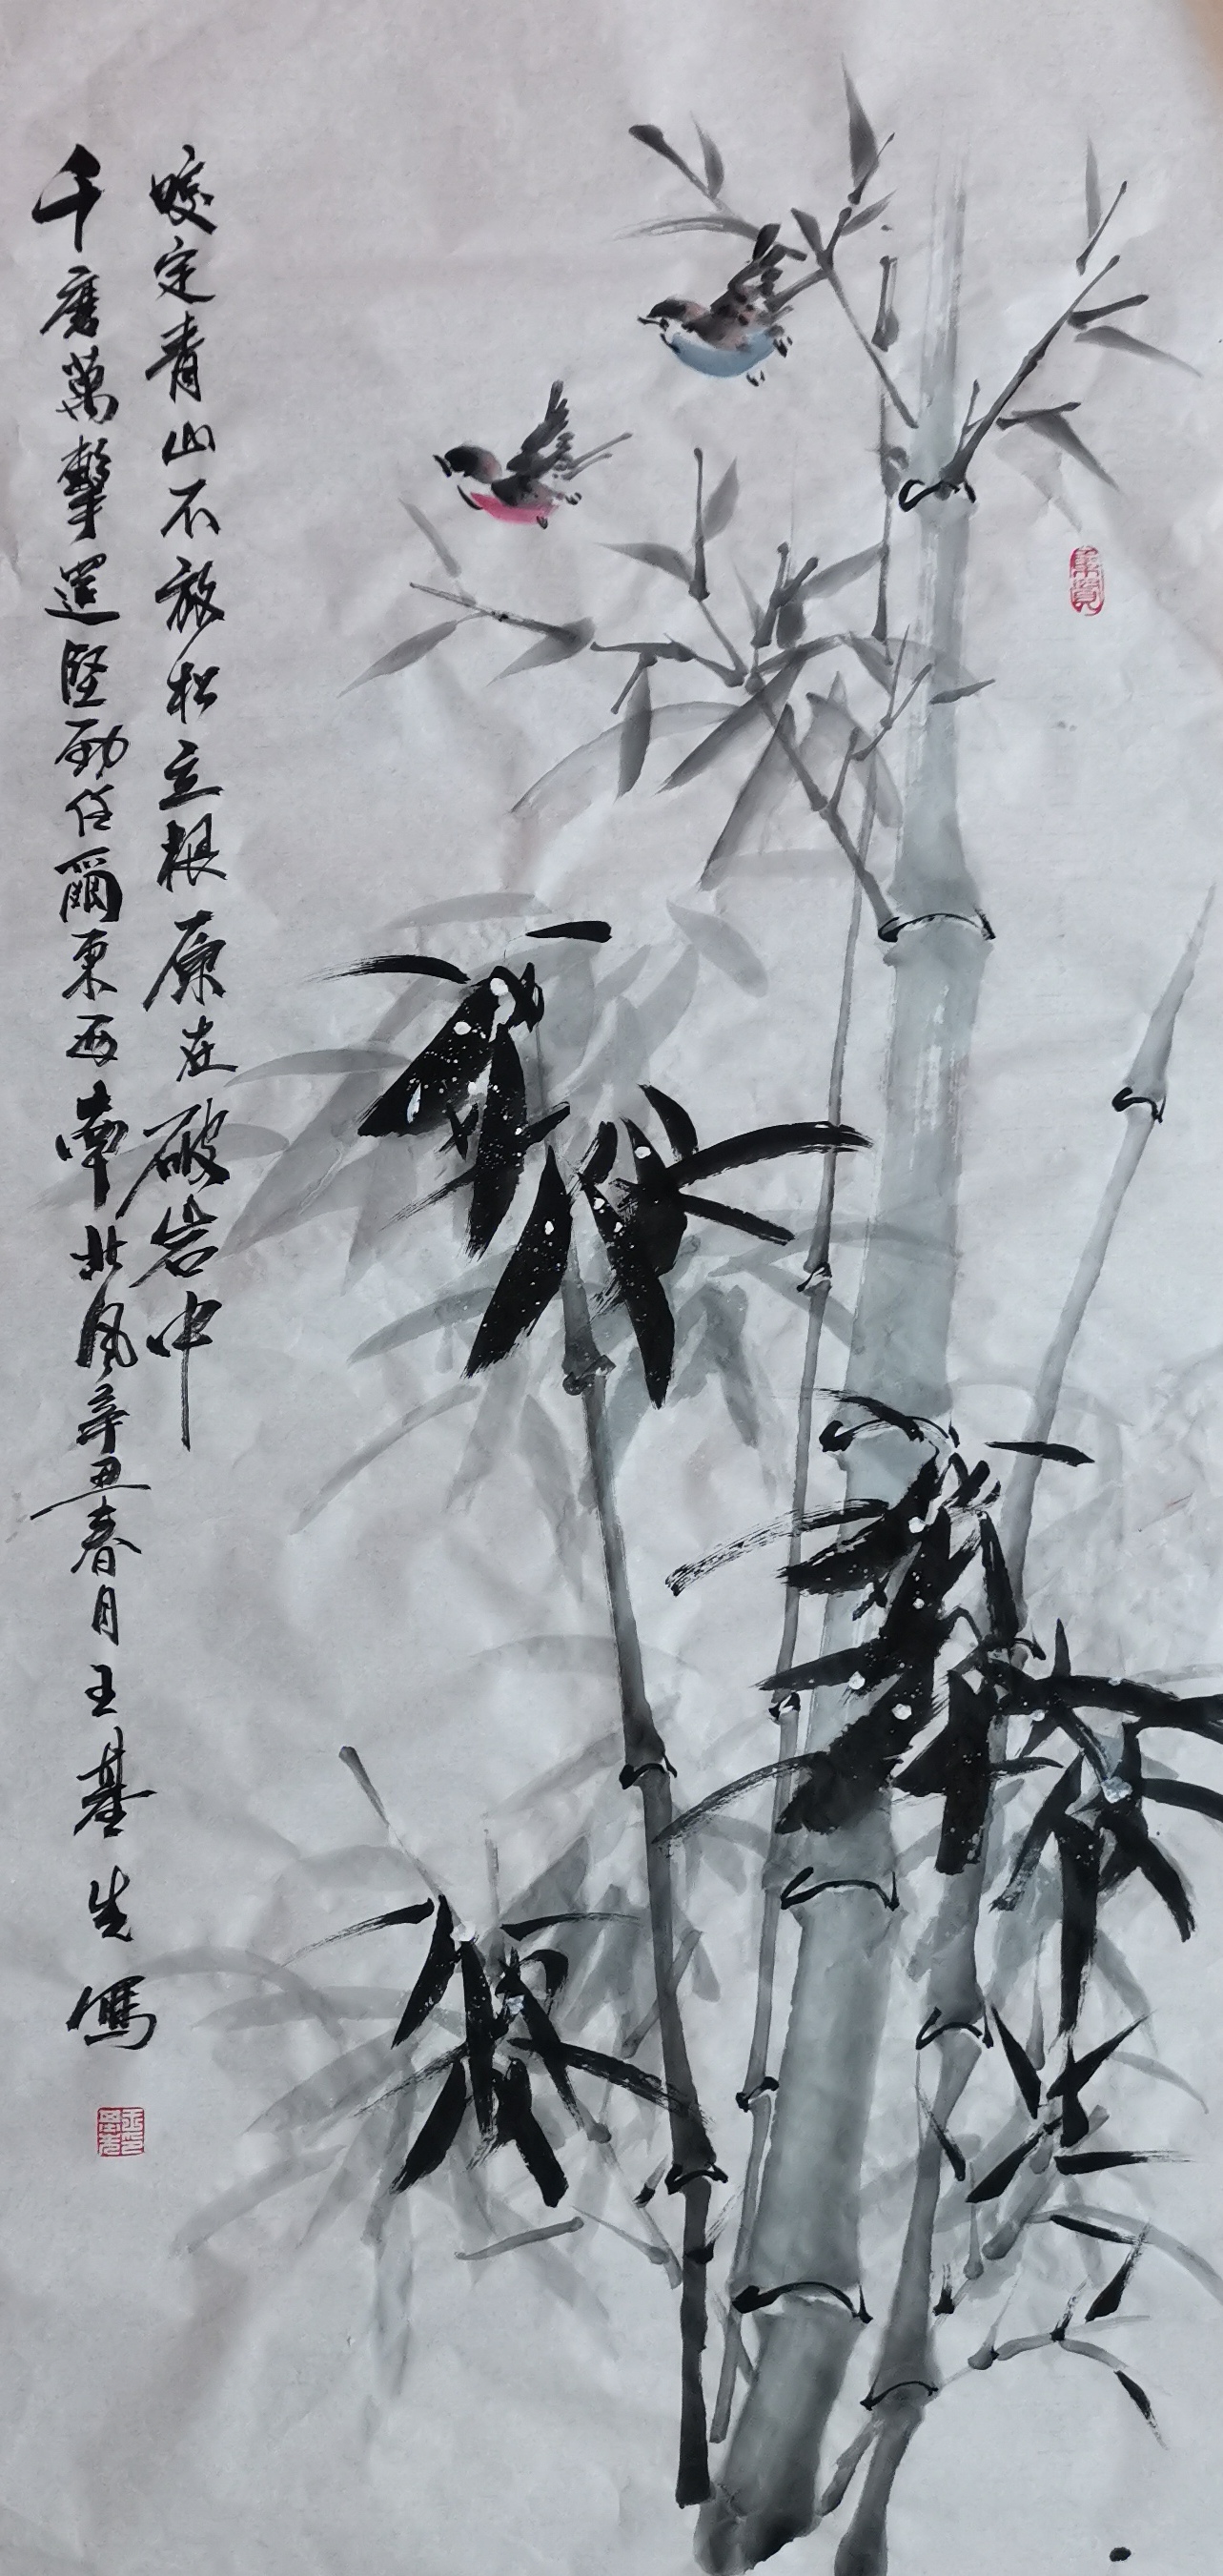 咬定青山不放松立根原在破岩中
千磨萬擊還堅勁任爾東西南北风辛丑春月王基生寫